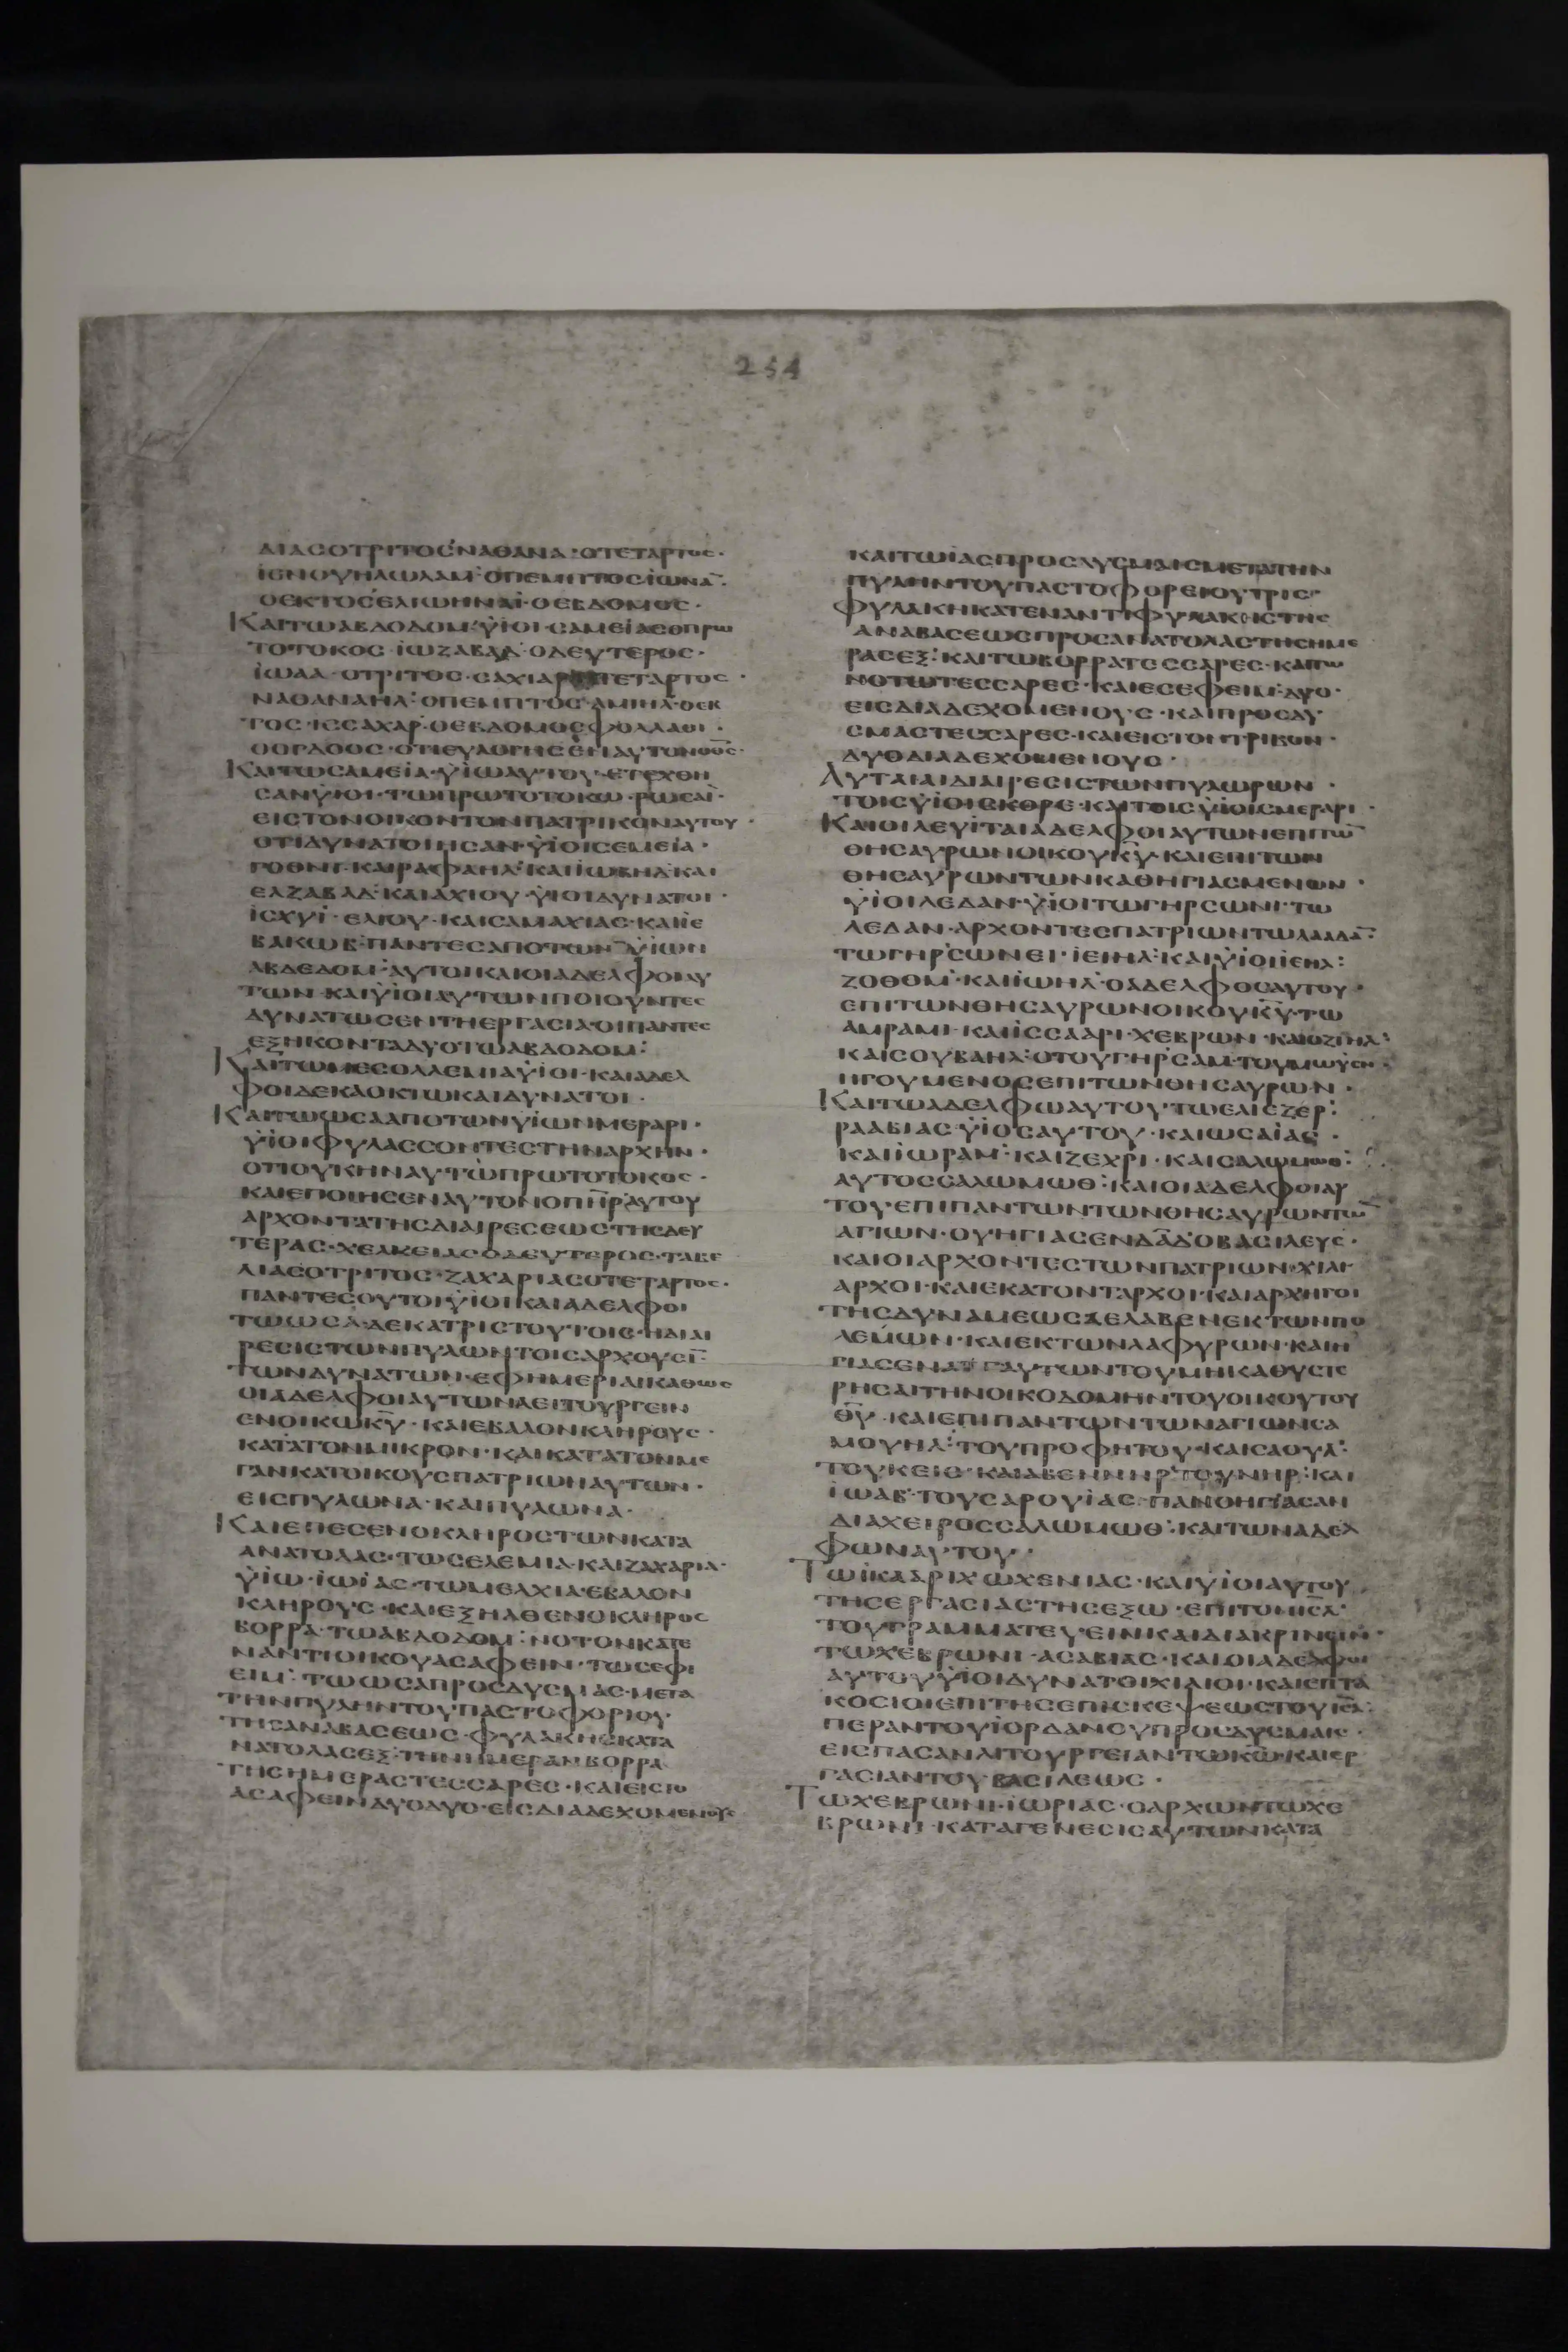 254
ΔΙΑϹΟΤΡΙΤΟϹΝΑΘΑΝΑ·ΟΤΕΤΑΡΤΟϹ·
ΟΕΚΤΟϹ ΟΕΒΔΟΜΟϹ·
ΚΑΙΤΩΑΒΔΟΔΟΜ·ΫΙΟΙ·ϹΑΜΕΙΑϹΟΠΡΩ
ΤΟΤΟΚΟϹ·ΙΩΖΑΒΑΔ·ΟΔΕΥΤΕΡΟϹ·
ΙΩΑΑ·ΟΤΡΙΤΟϹ·ϹΑΧΙΑΡ ΤΕΤΑΡΤΟϹ·
ΝΑΘΑΝΑΗΛ·ΟΠΕΜΠΤΟϹ·ΑΜΙΗΛ·ΟΕΚ
ΤΟϹ·ΙϹϹΑΧΑΡ·ΟΕΒΔΟΜΟϹ
ΟΟΓΔΟΟϹ·ΟΤΙΕΥΛΟΓΗϹΕΝΑΥΤΟΝΟΘϹ·
ΚΑΙΤΩϹΑΜΕΙΑ·ΫΙΩΑΥΤΟΥ·ΕΤΕΧΘΗ
ϹΑΝΫΙΟΙ·ΤΩΠΡΩΤΟΤΟΚΩ·ΡΩϹΑΙ·
ΕΙϹΤΟΝΟΙΚΟΝΤΟΝΠΑΤΡΙΚΟΝΑΥΤΟΥ·
ΟΤΙΔΥΝΑΤΟΙΗϹΑΝ·ΫΙΟΙϹΕΜΕΙΑ·
ΓΟΘΝΙ·ΚΑΙΡΑΦΑΗΛ·ΚΑΙΙΩΒΗΔ·ΚΑΙ
ΕΛΖΑΒΑΔ·ΚΑΙΑΧΙΟΥ·ΫΙΟΙΔΥΝΑΤΟΙ·
ΙϹΧΥΙ·ΕΛΙΟΥ·ΚΑΙϹΑΜΑΧΙΑϹ·ΚΑΙΙϹ
ΒΑΚΩΒ·ΠΑΝΤΕϹΑΠΟΤΩΝΫΙΩΝ
ΑΒΔΕΔΟΜ·ΑΥΤΟΙΚΑΙΟΙΑΔΕΛΦΟΙΑΥ
ΤΩΝ·ΚΑΙΫΙΟΙΑΥΤΩΝΠΟΙΟΥΝΤΕϹ
ΔΥΝΑΤΩϹΕΝΤΗΕΡΓΑϹΙΑ·ΟΙΠΑΝΤΕϹ
ΕΞΗΚΟΝΤΑΔΥΟΤΩΑΒΔΟΔΟΜ:
ΚΑΙΤΩΜΕϹΟΛΛΕΜΙΑΫΙΟΙ·ΚΑΙΑΔΕΛ
ΦΟΙΔΕΚΑΟΚΤΩΚΑΙΔΥΝΑΤΟΙ·
ΚΑΙΤΩΩϹΑΑΠΟΤΩΝΫΙΩΝΜΕΡΑΡΙ·
ΫΙΟΙΦΥΛΑϹϹΟΝΤΕϹΤΗΝΑΡΧΗΝ·
ΟΤΙΟΥΚΗΝΑΥΤΩΠΡΩΤΟΤΟΚΟϹ·
ΚΑΙΕΠΟΙΗϹΕΝΑΥΤΟΝΟΠΗΡΑΥΤΟΥ
ΑΡΧΟΝΤΑΤΗϹΔΙΑΙΡΕϹΕΩϹΤΗϹΔΕΥ
ΤΕΡΑϹ·ΧΕΛΚΕΙΑϹΟΔΕΥΤΕΡΟϹ·ΤΑΒΕ
ΛΙΑϹΟΤΡΙΤΟϹ·ΖΑΧΑΡΙΑϹΟΤΕΤΑΡΤΟϹ·
ΠΑΝΤΕϹΟΥΤΟΙΫΙΟΙΚΑΙΑΔΕΛΦΟΙ
ΤΩΩϹΑ·ΔΕΚΑΤΡΙϹΤΟΥΤΟΙϹ·ΗΔΙΑΙ
ΡΕϹΙϹΤΩΝΠΥΛΩΝΤΟΙϹΑΡΧΟΥϹΙ
ΤΩΝΔΥΝΑΤΩΝ·ΕΦΗΜΕΡΙΑΙΚΑΘΩϹ
ΟΙΑΔΕΛΦΟΙΑΥΤΩΝΛΕΙΤΟΥΡΓΕΙΝ
ΕΝΟΙΚΩΚΥ·ΚΑΙΕΒΑΛΟΝΚΛΗΡΟΥϹ·
ΚΑΤΑΤΟΝΜΙΚΡΟΝ·ΚΑΙΚΑΤΑΤΟΝΜΕ
ΓΑΝΚΑΤΟΙΚΟΥϹΠΑΤΡΙΩΝΑΥΤΩΝ·
ΕΙϹΠΥΛΩΝΑ·ΚΑΙΠΥΛΩΝΑ·
ΚΑΙΕΠΕϹΕΝΟΚΛΗΡΟϹΤΩΝΚΑΤΑ
ΑΝΑΤΟΛΑϹ·ΤΩϹΕΛΕΜΙΑ·ΚΑΙΖΑΧΑΡΙΑ·
ΫΙΩ·ΙΩΙΑϹ·ΤΩΜΕΛΧΙΑ·ΕΒΑΛΟΝ
ΚΛΗΡΟΥϹ·ΚΑΙΕΞΗΛΘΕΝΟΚΛΗΡΟϹ
ΒΟΡΡΑ·ΤΩΑΒΔΟΔΟΜ:ΝΟΤΟΝΚΑΤΕ
ΝΑΝΤΙΟΙΚΟΥΑϹΑΦΕΙΝ·ΤΩϹΕΦΙ
ΕΙΜ:ΤΩΩϹΑΠΡΟϹΔΥϹΜΑϹ·ΜΕΤΑ
ΤΗΝΠΥΛΗΝΤΟΥΠΑϹΤΟΦΟΡΙΟΥ·
ΤΗϹΑΝΑΒΑϹΕΩϹ·ΦΥΛΑΚΗϹΚΑΤΑ
ΝΑΤΟΛΑϹΕΞ:ΤΗΝΗΜΕΡΑΝΒΟΡΡΑ
ΤΗϹΗΜΕΡΑϹΤΕϹϹΑΡΕϹ·ΚΑΙΕΙϹΤΟ
ΑϹΑΦΕΙΝΔΥΟΔΥΟ·ΕΙϹΔΙΑΔΕΧΟΜΕΝΟΥϹ
ΚΑΙΤΩΙΑϹΠΡΟϹΔΥϹΜΑΙϹΜΕΤΑΤΗΝ
ΠΥΛΗΝΤΟΥΠΑϹΤΟΦΟΡΕΙΟΥΤΡΙϹ·
ΦΥΛΑΚΗΚΑΤΕΝΑΝΤΙΦΥΛΑΚΗϹΤΗϹ
ΑΝΑΒΑϹΕΩϹΠΡΟϹΑΝΑΤΟΛΑϹΤΗϹΗΜΕ
ΡΑϹΕΞ:ΚΑΙΤΩΒΟΡΡΑΤΕϹϹΑΡΕϹ·ΚΑΙΤΩ
ΝΟΤΩΤΕϹϹΑΡΕϹ·ΚΑΙΕϹΕΦΕΙΜ·ΔΥΟ·
ΕΙϹΔΙΑΔΕΧΟΜΕΝΟΥϹ·ΚΑΙΠΡΟϹΔΥ
ϹΜΑϹΤΕϹϹΑΡΕϹ·ΚΑΙΕΙϹΤΟΝΤΡΙΒΟΝ·
ΔΥΟΔΙΑΔΕΧΟΜΕΝΟΥϹ·
ΑΥΤΑΙΑΙΔΙΑΙΡΕϹΙϹΤΩΝΠΥΛΩΡΩΝ·
ΤΟΙϹΫΙΟΙϹΚΟΡΕ·ΚΑΙΤΟΙϹΫΙΟΙϹΜΕΡΑΡΙ·
ΚΑΙΟΙΛΕΥΙΤΑΙΑΔΕΛΦΟΙΑΥΤΩΝΕΠΙΤΩ
ΘΗϹΑΥΡΩΝΟΙΚΟΥΚΥ·ΚΑΙΕΠΙΤΩΝ
ΘΗϹΑΥΡΩΝΤΩΝΚΑΘΗΓΙΑϹΜΕΝΩΝ·
ΫΙΟΙΛΕΔΑΝ·ΫΙΟΙΤΩΓΗΡϹΩΝΙ·ΤΩ
ΛΕΔΑΝ·ΑΡΧΟΝΤΕϹΠΑΤΡΙΩΝΤΩΛΑΔΑ:
ΤΩΓΗΡϹΩΝΕΙ·ΙΕΙΗΛ:ΚΑΙΫΙΟΙΙΕΙΗΛ:
ΖΟΘΟΜ·ΚΑΙΙΩΗΛ·ΟΑΔΕΛΦΟϹΑΥΤΟΥ·
ΕΠΙΤΩΝΘΗϹΑΥΡΩΝΟΙΚΟΥΚΥ·ΤΩ
ΑΜΡΑΜΙ·ΚΑΙΙϹϹΑΑΡΙ·ΧΕΒΡΩΝ·ΚΑΙΟΖΙΗΛ:
ΚΑΙϹΟΥΒΑΗΛ:ΟΤΟΥΓΗΡϹΑΜ·ΤΟΥΜΩΫϹΗ·
ΗΓΟΥΜΕΝΟϹΕΠΙΤΩΝΘΗϹΑΥΡΩΝ·
ΚΑΙΤΩΑΔΕΛΦΩΑΥΤΟΥ·ΤΩΕΛΙΕΖΕΡ:
ΡΑΑΒΙΑϹ·ΫΙΟϹΑΥΤΟΥ·ΚΑΙΩϹΑΙΑϹ·
ΚΑΙΙΩΡΑΜ:ΚΑΙΖΕΧΡΙ·ΚΑΙϹΑΛΩΜΩΘ:
ΑΥΤΟϹϹΑΛΩΜΩΘ:ΚΑΙΟΙΑΔΕΛΦΟΙΑΥ
ΤΟΥ·ΕΠΙΠΑΝΤΩΝΤΩΝΘΗϹΑΥΡΩΝΤΩ
ΑΓΙΩΝ·ΟΥΗΓΙΑϹΕΝΔΑΔΟΒΑϹΙΛΕΥϹ·
ΚΑΙΟΙΑΡΧΟΝΤΕϹΤΩΝΠΑΤΡΙΩΝ·ΧΙΛΙ
ΑΡΧΟΙ·ΚΑΙΕΚΑΤΟΝΤΑΡΧΟΙ·ΚΑΙΑΡΧΗΓΟΙ
ΤΗϹΔΥΝΑΜΕΩϹ ΕΛΑΒΕΝΕΚΤΩΝΠΟ
ΛΕΜΩΝ·ΚΑΙΕΚΤΩΝΛΑΦΥΡΩΝ·ΚΑΙΗ
ΓΙΑϹΕΝΑΠΑΥΤΩΝΤΟΥΜΗΚΑΘΥϹΤΕ
ΡΗϹΑΙΤΗΝΟΙΚΟΔΟΜΗΝΤΟΥΟΙΚΟΥΤΟΥ
ΘΥ·ΚΑΙΕΠΙΠΑΝΤΩΝΤΩΝΑΓΙΩΝϹΑ
ΜΟΥΗΛ:ΤΟΥΠΡΟΦΗΤΟΥ·ΚΑΙϹΑΟΥΛ:
ΤΟΥΚΕΙϹ·ΚΑΙΑΒΕΝΝΗΡ·ΤΟΥΝΗΡ:ΚΑΙ
ΙΩΑΒ·ΤΟΥϹΑΡΟΥΙΑϹ·ΠΑΝΟΗΓΙΑϹΑΝ
ΔΙΑΧΕΙΡΟϹϹΑΛΩΜΩΘ:ΚΑΙΤΩΝΑΔΕΛ
ΦΩΝΑΥΤΟΥ·
ΤΗϹΕΡΓΑϹΙΑϹΤΗϹΕΞΩ·ΕΠΙΤΟΝΙϹΛ:
ΤΟΥΓΡΑΜΜΑΤΕΥΕΙΝΚΑΙΔΙΑΚΡΙΝΕΙΝ·
ΤΩΧΕΒΡΩΝΙ·ΑϹΑΒΙΑϹ·ΚΑΙΟΙΑΔΕΛΦΟΙ
ΑΥΤΟΥΫΙΟΙΔΥΝΑΤΟΙΧΙΛΙΟΙ·ΚΑΙΕΠΤΑ
ΚΟϹΙΟΙΕΠΙΤΗϹΕΠΙϹΚΕΨΕΩϹΤΟΥΙΗΛ:
ΠΕΡΑΝΤΟΥΙΟΡΔΑΝΟΥΠΡΟϹΔΥϹΜΑΙϹ·
ΕΙϹΠΑϹΑΝΛΙΤΟΥΡΓΕΙΑΝΤΩΚΩ·ΚΑΙΕΡ
ΓΑϹΙΑΝΤΟΥΒΑϹΙΛΕΩϹ·
ΤΩΧΕΒΡΩΝΙ·ΙΩΡΙΑϹ·ΟΑΡΧΩΝΤΩΧΕ
ΒΡΩΝΙ·ΚΑΤΑΓΕΝΕϹΙϹΑΥΤΩΝΚΑΤΑ